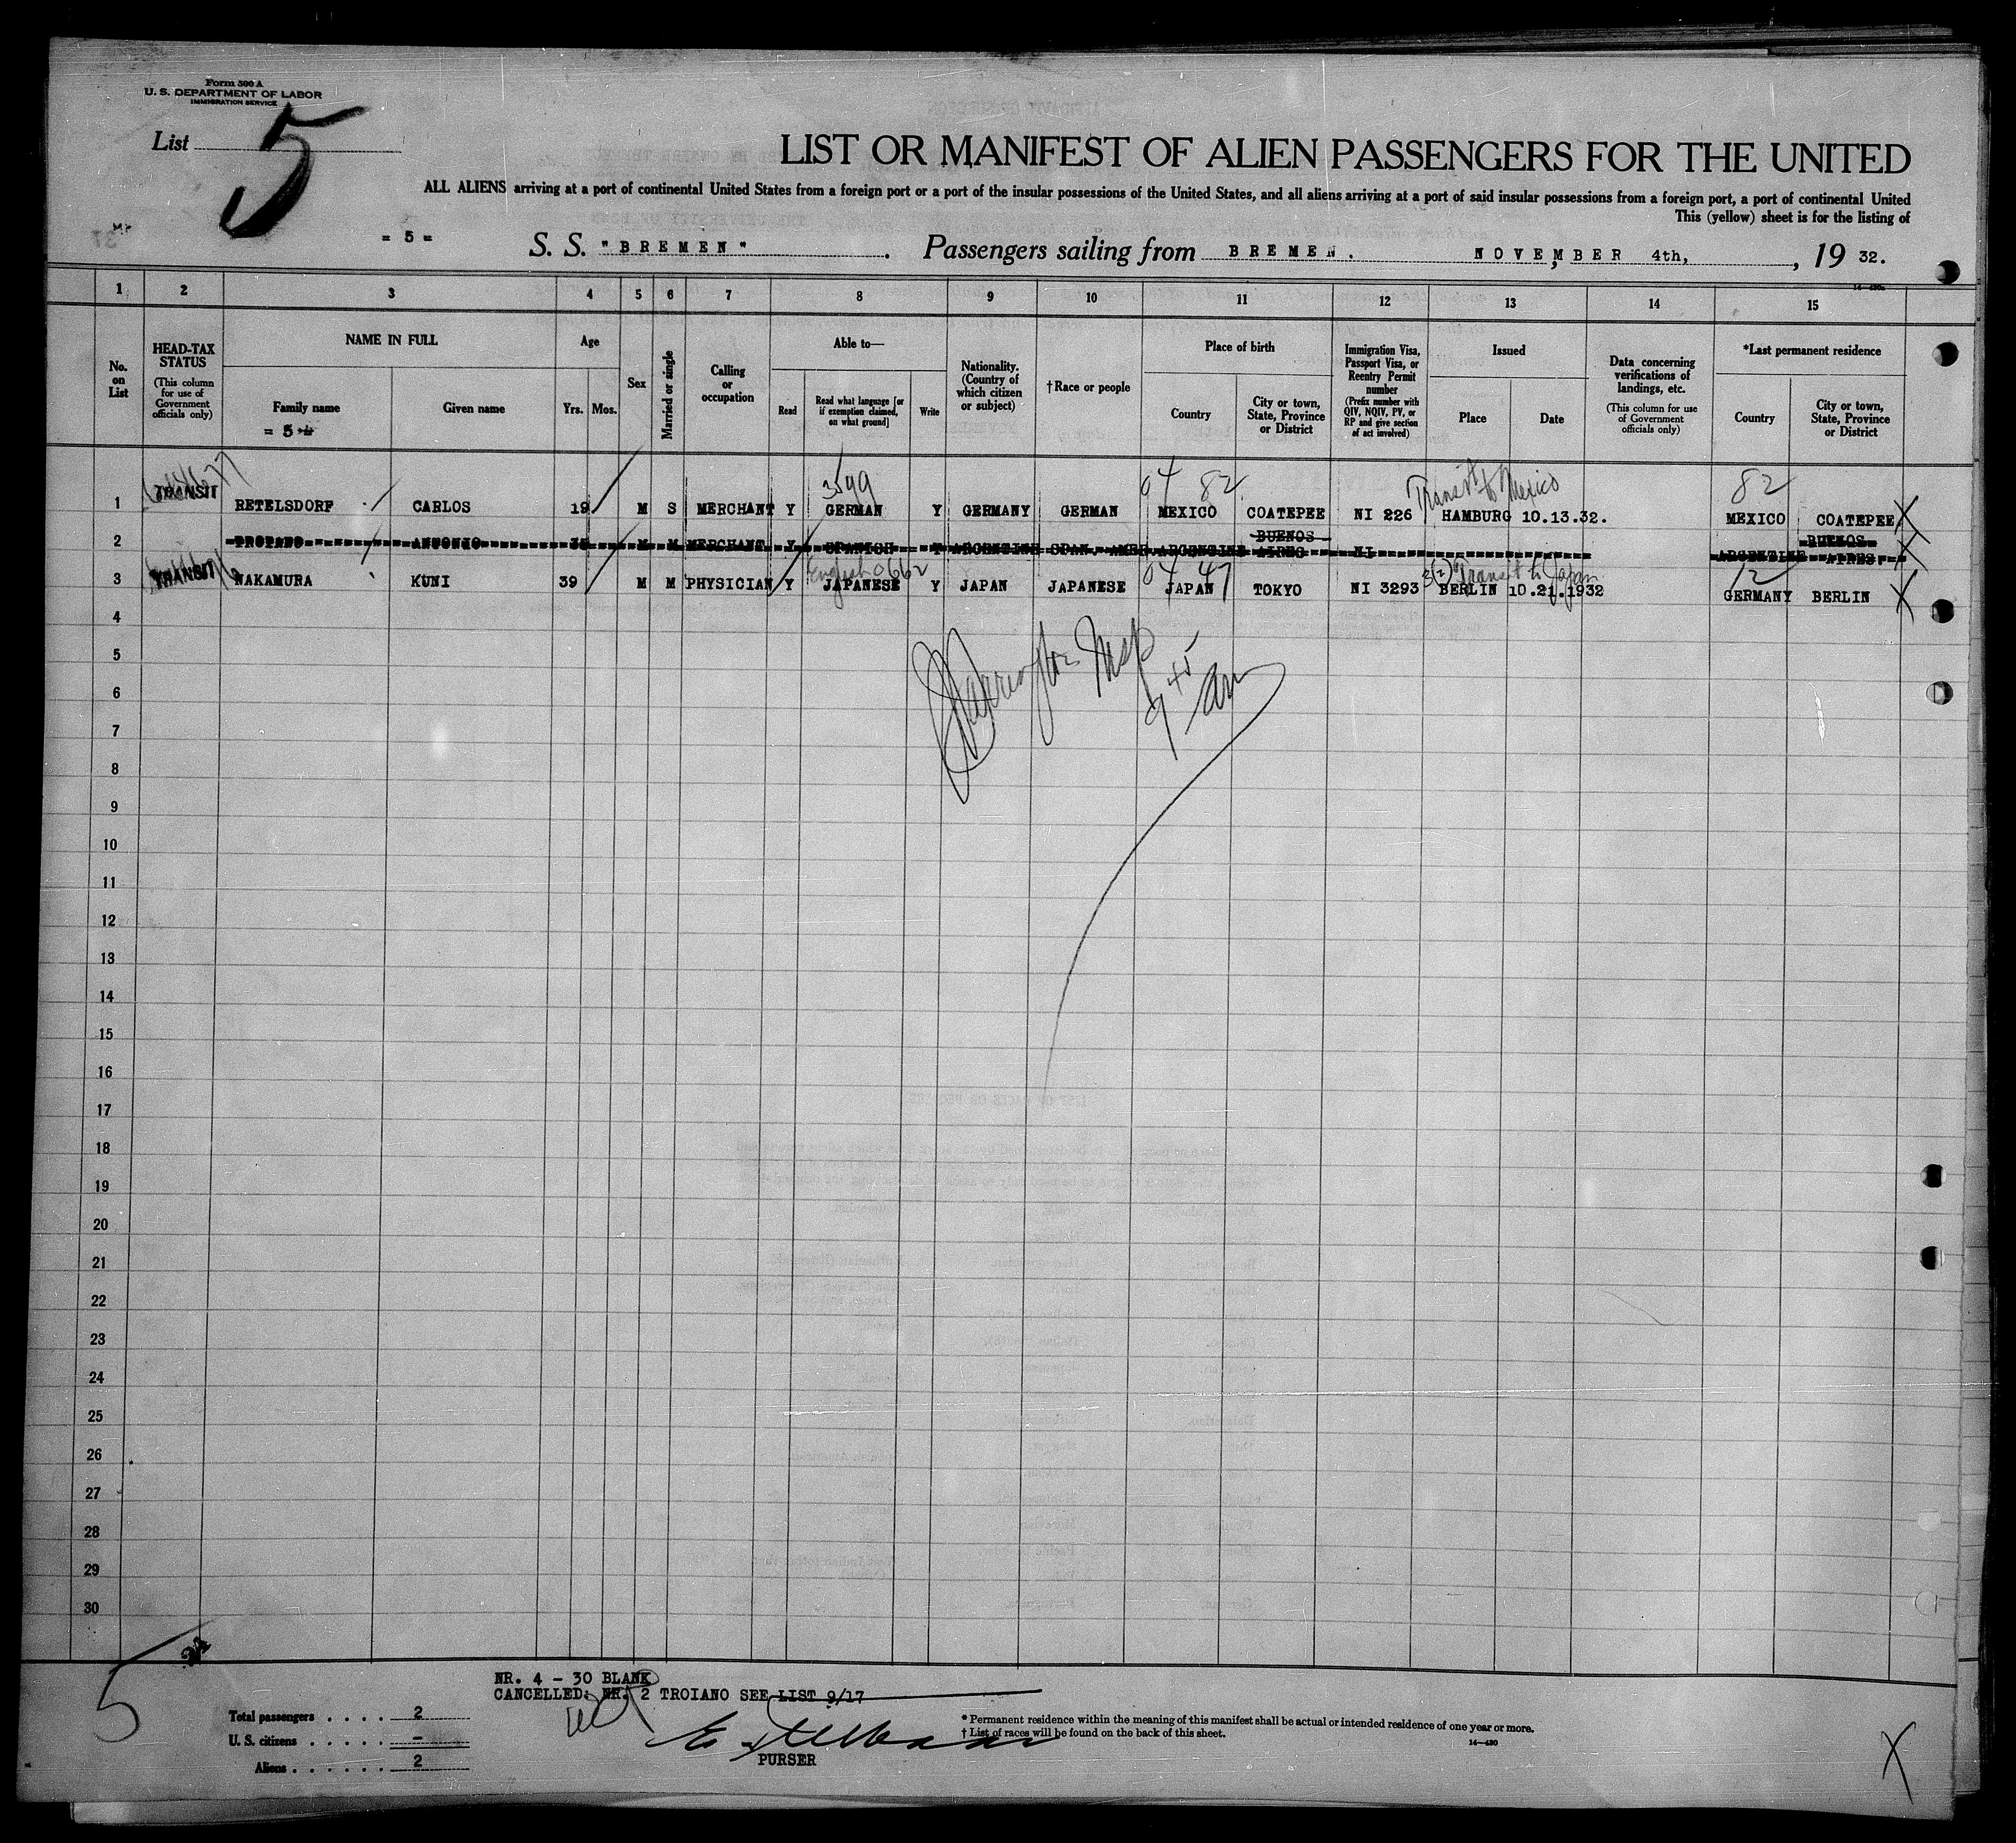 Form 500 A
U. S. DEPARTMENT OF LABOR
IMMIGRATION SERVICE
List 5
LIST OR MANIFEST OF ALIEN PASSENGERS FOR THE UNITED
ALL ALIENS arriving at a port of continental United States from a foreign port or a port of the insular possessions of the United States, and all aliens arriving at a port of said insular possessions from a foreign port, a port of continental United
This (yellow) sheet is for the listing of
= 5 =
S. S. "BREMEN". Passengers sailing from BREMEN. NOVEMBER 4th, , 19 32.
1 2 3 4 5 6 7 8 9 10 11 12 13 14 15
No. on List
HEAD-TAX STATUS
(This column for use of Government officials only)
NAME IN FULL
Family name
= 5 =
Given name
Age
Yrs. Mos.
Sex
Married or single
Calling or occupation
Able to—
Read
Read what language [or if exemption claimed, on what ground]
Write
Nationality. (Country of which citizen or subject)
†Race or people
Place of birth
Country
City or town, State, Province or District
Immigration Visa, Passport Visa, or Reentry Permit number
(Prefix number with QIV, NQIV, PV, or RP and give section of act involved)
Issued
Place
Date
Data concerning verifications of landings, etc.
(This column for use of Government officials only)
*Last permanent residence
Country
City or town, State, Province or District
3599 04 82 Transit to Mexico 82
1 TRANSIT RETELSDORF CARLOS 19 M S MERCHANT Y GERMAN Y GERMANY GERMAN MEXICO COATEPEE NI 226 HAMBURG 10.13.32. MEXICO COATEPEE X
BUENOS BUENOS
2 ANTONIO M M MERCHANT Y SPANISH Y ARGENTINE SPAN. AMER ARGENTINE AIRES NI ARGENTINE AIRES X
English 0662 04 47 Transit to Japan 12
3 TRANSIT NAKAMURA KUNI 39 M M PHYSICIAN Y JAPANESE Y JAPAN JAPANESE JAPAN TOKYO NI 3293 BERLIN 10.21.1932 GERMANY BERLIN X
4
5
6
9 45 am
7
8
9
10
11
12
13
14
15
16
17
18
19
20
21
22
23
24
25
26
27
28
29
30
5
NR. 4 - 30 BLANK
CANCELLED: NR. 2 TROIANO SEE LIST 9/17
Total passengers . . . . 2
U. S. citizens . . . . . –
Aliens . . . . . . 2
PURSER
* Permanent residence within the meaning of this manifest shall be actual or intended residence of one year or more.
† List of races will be found on the back of this sheet.
14—430
X